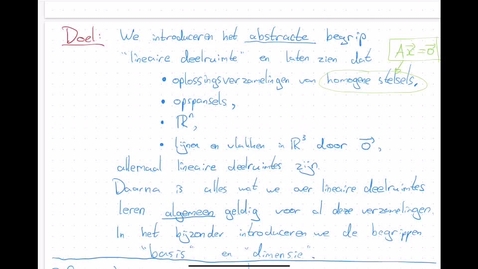 Doel: We introduceren het abstracte begrip
"lineaire deelruimte" en laten zien dat
A\vec{x}=\vec{0}
• oplossingsverzamelingen van homogene stelsels,
• opspansels,
• ℝⁿ,
• lijnen en vlakken in ℝ³ door \vec{0},
allemaal lineaire deelruimtes zijn.
Daarna is alles wat we over lineaire deelruimtes
leren algemeen geldig voor al deze verzamelingen.
In het bijzonder introduceren we de begrippen
"basis" en "dimensie".